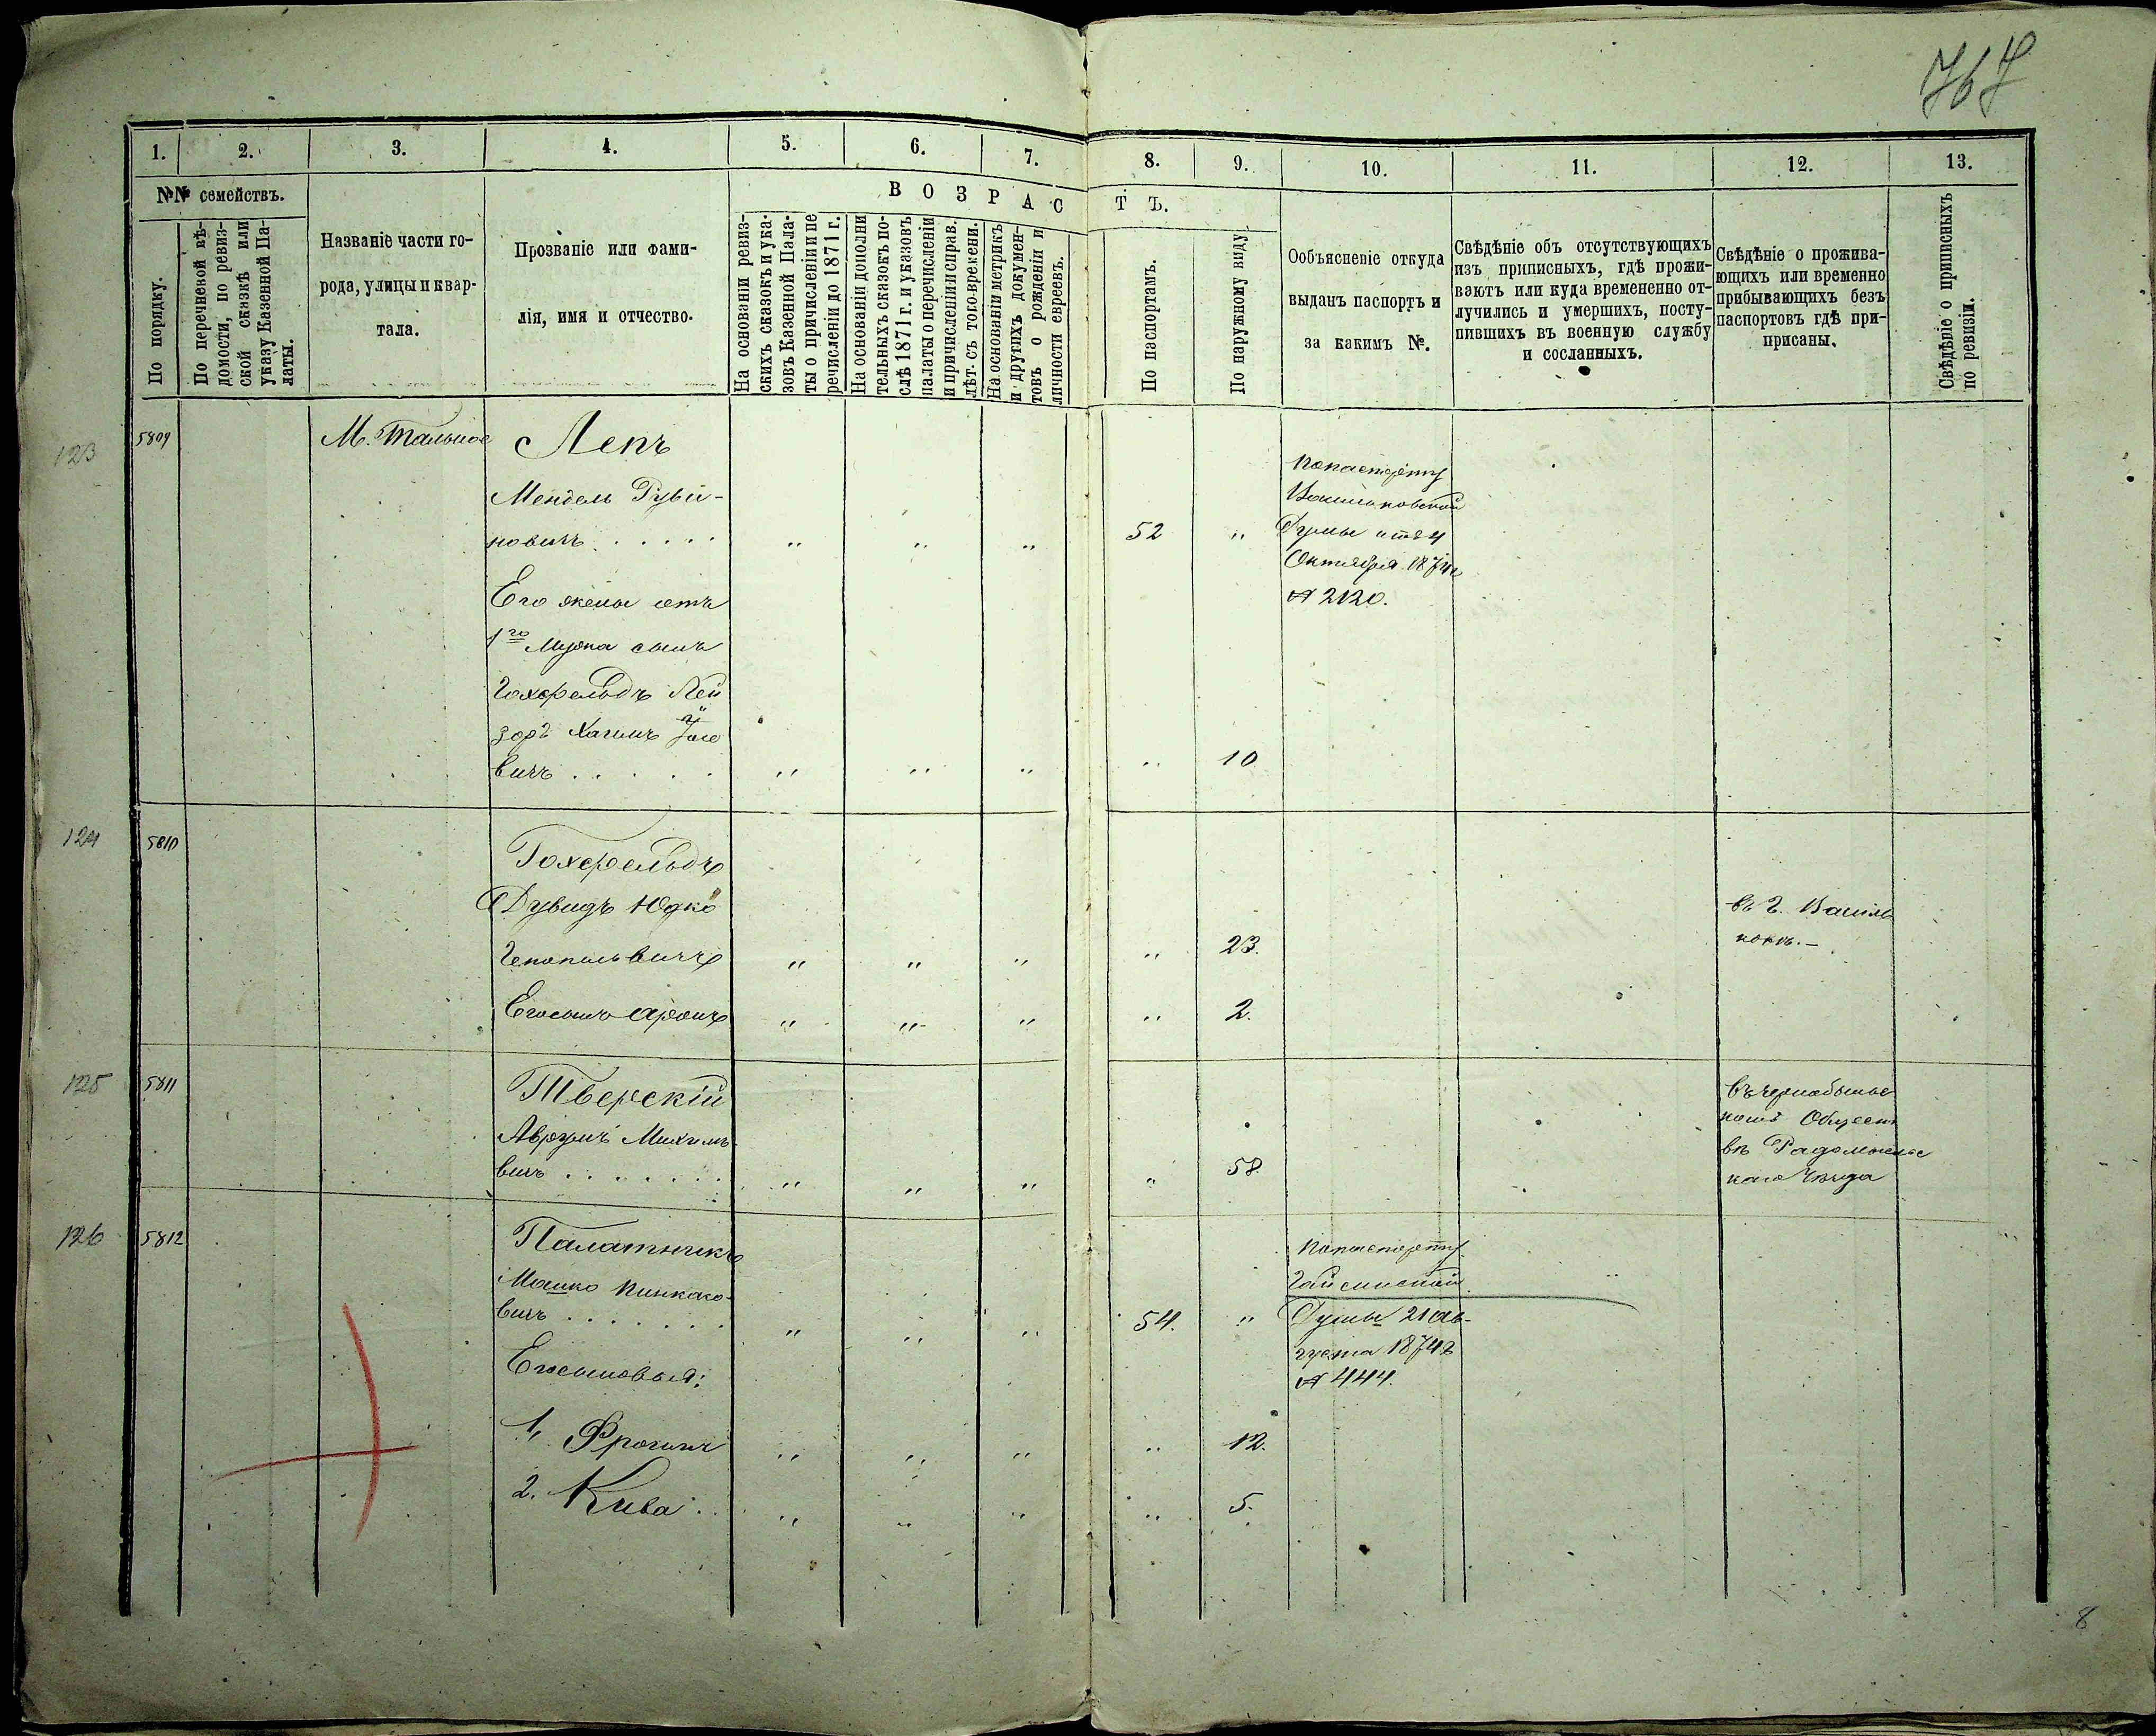 767
1. 2. 3. 4. 5. 6. 7. 8. 9. 10. 11. 12. 13.
№№ семействъ.
По порядку.
По перечневой вѣ-
домости, по ревиз-
ской сказкѣ или
указу Казенной Па-
латы.
Названіе части го-
рода, улицы и квар-
тала.
Прозваніе или фами-
лія, имя и отчество.
ВОЗРАСТЪ.
На основаніи ревиз-
скихъ сказокъ и ука-
зовъ Казенной Пала-
ты о причисленіи и пе
речисленіи до 1871 г.
На основаніи дополни
тельныхъ сказокъ по-
слѣ 1871 г. и указовъ
палаты о перечисленіи
и причисленіи и справ.
лѣт. съ того времени.
На основаніи метрикъ
и другихъ докумен-
товъ о рожденіи и
личности евреевъ.
По паспортамъ.
По наружному виду
Ообъясненіе откуда
выданъ паспортъ и
за какимъ №.
Свѣдѣніе объ отсутствующихъ
изъ приписныхъ, гдѣ прожи-
ваютъ или куда времененно от-
лучились и умершихъ, посту-
пившихъ въ военную службу
и сосланныхъ.
Свѣдѣніе о прожива-
ющихъ или временно
прибывающихъ безъ
паспортовъ гдѣ при-
писаны.
Свѣдѣніе о приписныхъ
по ревизіи.
123 5809 М. Тальное Лепъ
Мендель Руви-
новичъ . . . . . " " " 52 "
Попаспорту
Васильковской
Думы отъ 4
Октября 1874г
№ 2120.
Его жены отъ
1го Мужа сынъ
Гохфельдъ Лей
зоръ Хаимъ
вичъ . . . . . " " " " 10
124 5810 Гохфельдъ
Дувидъ Юдко
вичъ " " " " 23.
въ г. Василь
ковѣ.-
Его сынъ Аронъ " " " " 2.
125 5811 Тверскій
Аврумъ Михель-
вичъ . . . . . . . " " " " 58.
въ Чернобыльс
комъ Общест
вѣ Радомысльс
каго Уѣзда
126 5812 Палатникъ
Мошко Пинхасо-
вичъ . . . . . . . " " " 54. "
Попаспорту
Гайсинской
Думы 21 Ав-
густа 1874г
№ 444.
Его сыновья:
1, Фроимъ " " " " 12.
2. Кива . . " " " " 5.
8